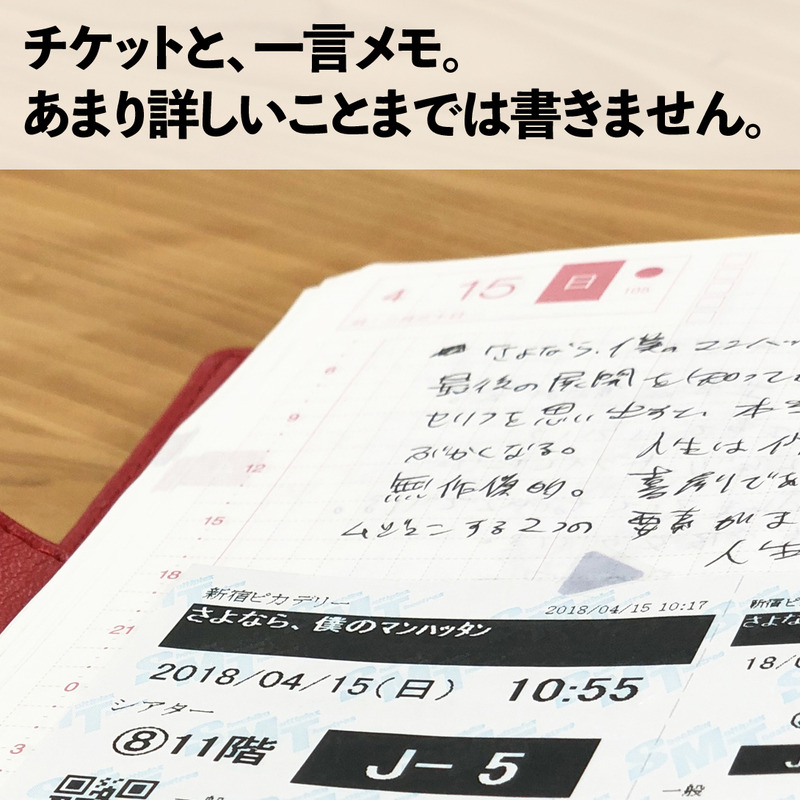 チケットと、一言メモ。
あまり詳しいことまでは書きません。
4 15 日
さよなら、僕の マンハッ
最後の展開を知って
セリフを思い出すと、本当
ぶかくなる。 人生は
無作為的。 喜劇であ
する2つの 要素がま
人生
6
9
12
15
18
21
0
3
新宿ピカデリー 2018/04/15 10:17
さよなら、僕のマンハッタン
2018/04/15(日) 10:55
シアター
⑧11階 J-5
一般
新宿ピ
さよな
18/0
J-
SMT